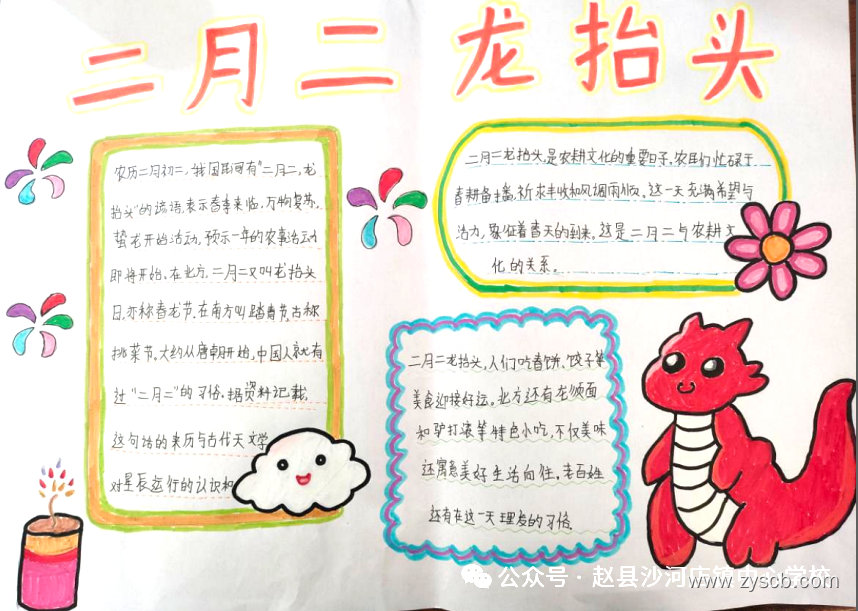 二月二 龙抬头
农历二月初二,我国民间有“二月二,龙
抬头”的谚语,表示春季来临,万物复苏,
蛰龙开始活动,预示一年的农事活动
即将开始。在北方,二月二又叫龙抬头
日,亦称春龙节。在南方叫踏青节,古称
挑菜节。大约从唐朝开始,中国人就有
过“二月二”的习俗。据资料记载,
这句话的来历与古代天文学
对星辰运行的认识和
二月二龙抬头,是农耕文化的重要日子,农民们忙碌于
春耕备播,祈求丰收和风调雨顺。这一天充满希望与
活力,象征着春天的到来。这是二月二与农耕文
化的关系。
二月二龙抬头,人们吃春饼、饺子等
美食迎接好运。北方还有龙须面
和驴打滚等特色小吃,不仅美味
还寓意美好生活向往,老百姓
还有在这一天理发的习俗.
公众号·赵县沙河店镇中心学校
www.zyscb.com